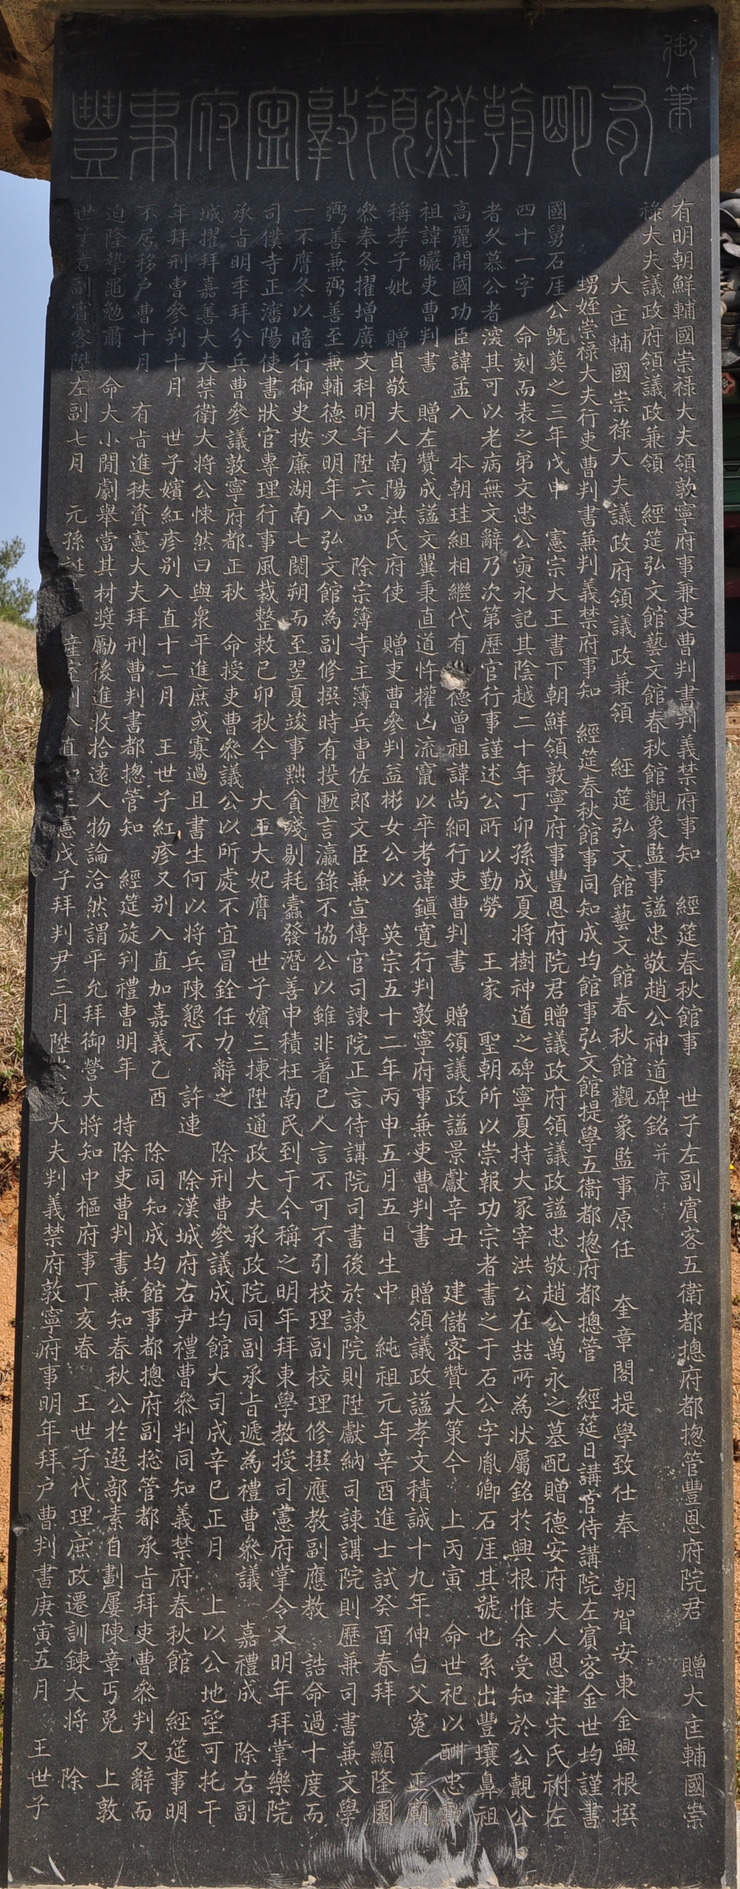 御筆
有明朝鮮領敦寧府事豐
有明朝鮮輔國崇祿大夫領敦寧府事兼吏曹判書判義禁府事知　經筵春秋館事　世子左副賓客五衛都摠府都摠管豐恩府院君　贈大匡輔國崇
祿大夫議政府領議政兼領　經筵弘文館藝文館春秋館觀象監事諡忠敬趙公神道碑銘并序
大匡輔國崇祿大夫議政府領議政兼領　經筵弘文館藝文館春秋館觀象監事原任　奎章閣提學致仕奉　朝賀安東金興根撰
甥姪崇祿大夫行吏曹判書兼判義禁府事知　經筵春秋館事同知成均館事弘文館提學五衛都摠府都摠管　經筵日講官侍講院左賓客金世均謹書
國舅石厓公旣葬之三年戊申　憲宗大王書下朝鮮領敦寧府事豐恩府院君贈議政府領議政諡忠敬趙公萬永之墓配贈德安府夫人恩津宋氏祔左
四十一字　命刻而表之第文忠公寅永記其陰越二十年丁卯孫成夏將樹神道之碑寧夏持大冢宰洪公在喆所為狀屬銘於興根惟余受知於公覿公
者久慕公者深其可以老病無文辭乃次第歷官行事謹述公所以勤勞　王家　聖朝所以崇報功宗者書之于石公字胤卿石厓其號也系出豐壤鼻祖
高麗開國功臣諱孟入　本朝珪組相繼代有德曾祖諱尚絅行吏曹判書　贈領議政諡景獻辛丑　建儲密贊大策今　上丙寅　命世祀以酬忠
祖諱曮吏曹判書　贈左贊成諡文翼秉直道忤權凶流竄以卒考諱鎮寬行判敦寧府事兼吏曹判書　贈領議政諡孝文積誠十九年伸白父冤　正廟
稱孝子妣　贈貞敬夫人南陽洪氏府使　贈吏曹參判益彬女公以　英宗五十二年丙申五月五日生中　純祖元年辛酉進士試癸酉春拜　顯隆園
參奉冬擢增廣文科明年陞六品　除宗簿寺主簿兵曹佐郎文臣兼宣傳官司諫院正言侍講院司書後於諫院則陞獻納司諫講院則歷兼司書兼文學
弼善兼弼善至兼輔德又明年入弘文館為副修撰時有投匭言瀛錄不協公以錐非著已人言不可不引校理副校理修撰應教副應教　誥命過十度而
一不膺冬以暗行御史按廉湖南七閱朔而至翌夏竣事黜貪殘剔耗蠹發潛善申積枉南民到于今稱之明年拜東學教授司憲府掌令又明年拜掌樂院
司僕寺正瀋陽使書狀官專理行事風裁整敕己卯秋今　大王大妃膺　世子嬪三揀陞通政大夫承政院同副承旨遞為禮曹參議　嘉禮成　除右副
承旨明季拜兵曹參議敦寧府都正秋　命授吏曹參議公以所處不宜冒銓任力辭之　除刑曹參議成均館大司成辛巳正月　上以公地望可托干
城擢拜嘉善大夫禁衛大將公悚然曰與衆平進庶或寡過且書生何以將兵陳懇不　許連　除漢城府右尹禮曹參判同知義禁府春秋館　經筵事明
年拜刑曹參判十月　世子嬪紅疹別入直十二月　王世子紅疹又別入直加嘉義乙酉　除同知成均館事都摠府副摠管都承旨拜吏曹參判又辭而
不居移戶曹十月　有旨進秩資憲大夫拜刑曹判書都摠管知　經筵旋判禮曹明年　特除吏曹判書兼知春秋公於選部素自劃屢陳章丐免　上敦
迫隆摯黽勉肅　命大小閒劇舉當其材奬勵後進收拾遠人物論洽然謂平允拜御營大將知中樞府事丁亥春　王世子代理庶政遷訓鍊大將　除
世子右副賓客陞左副七月　元孫　産室　直　憲戊子拜判尹三月陞　大夫判義禁府敦寧府事明年拜戶曹判書庚寅五月　王世子